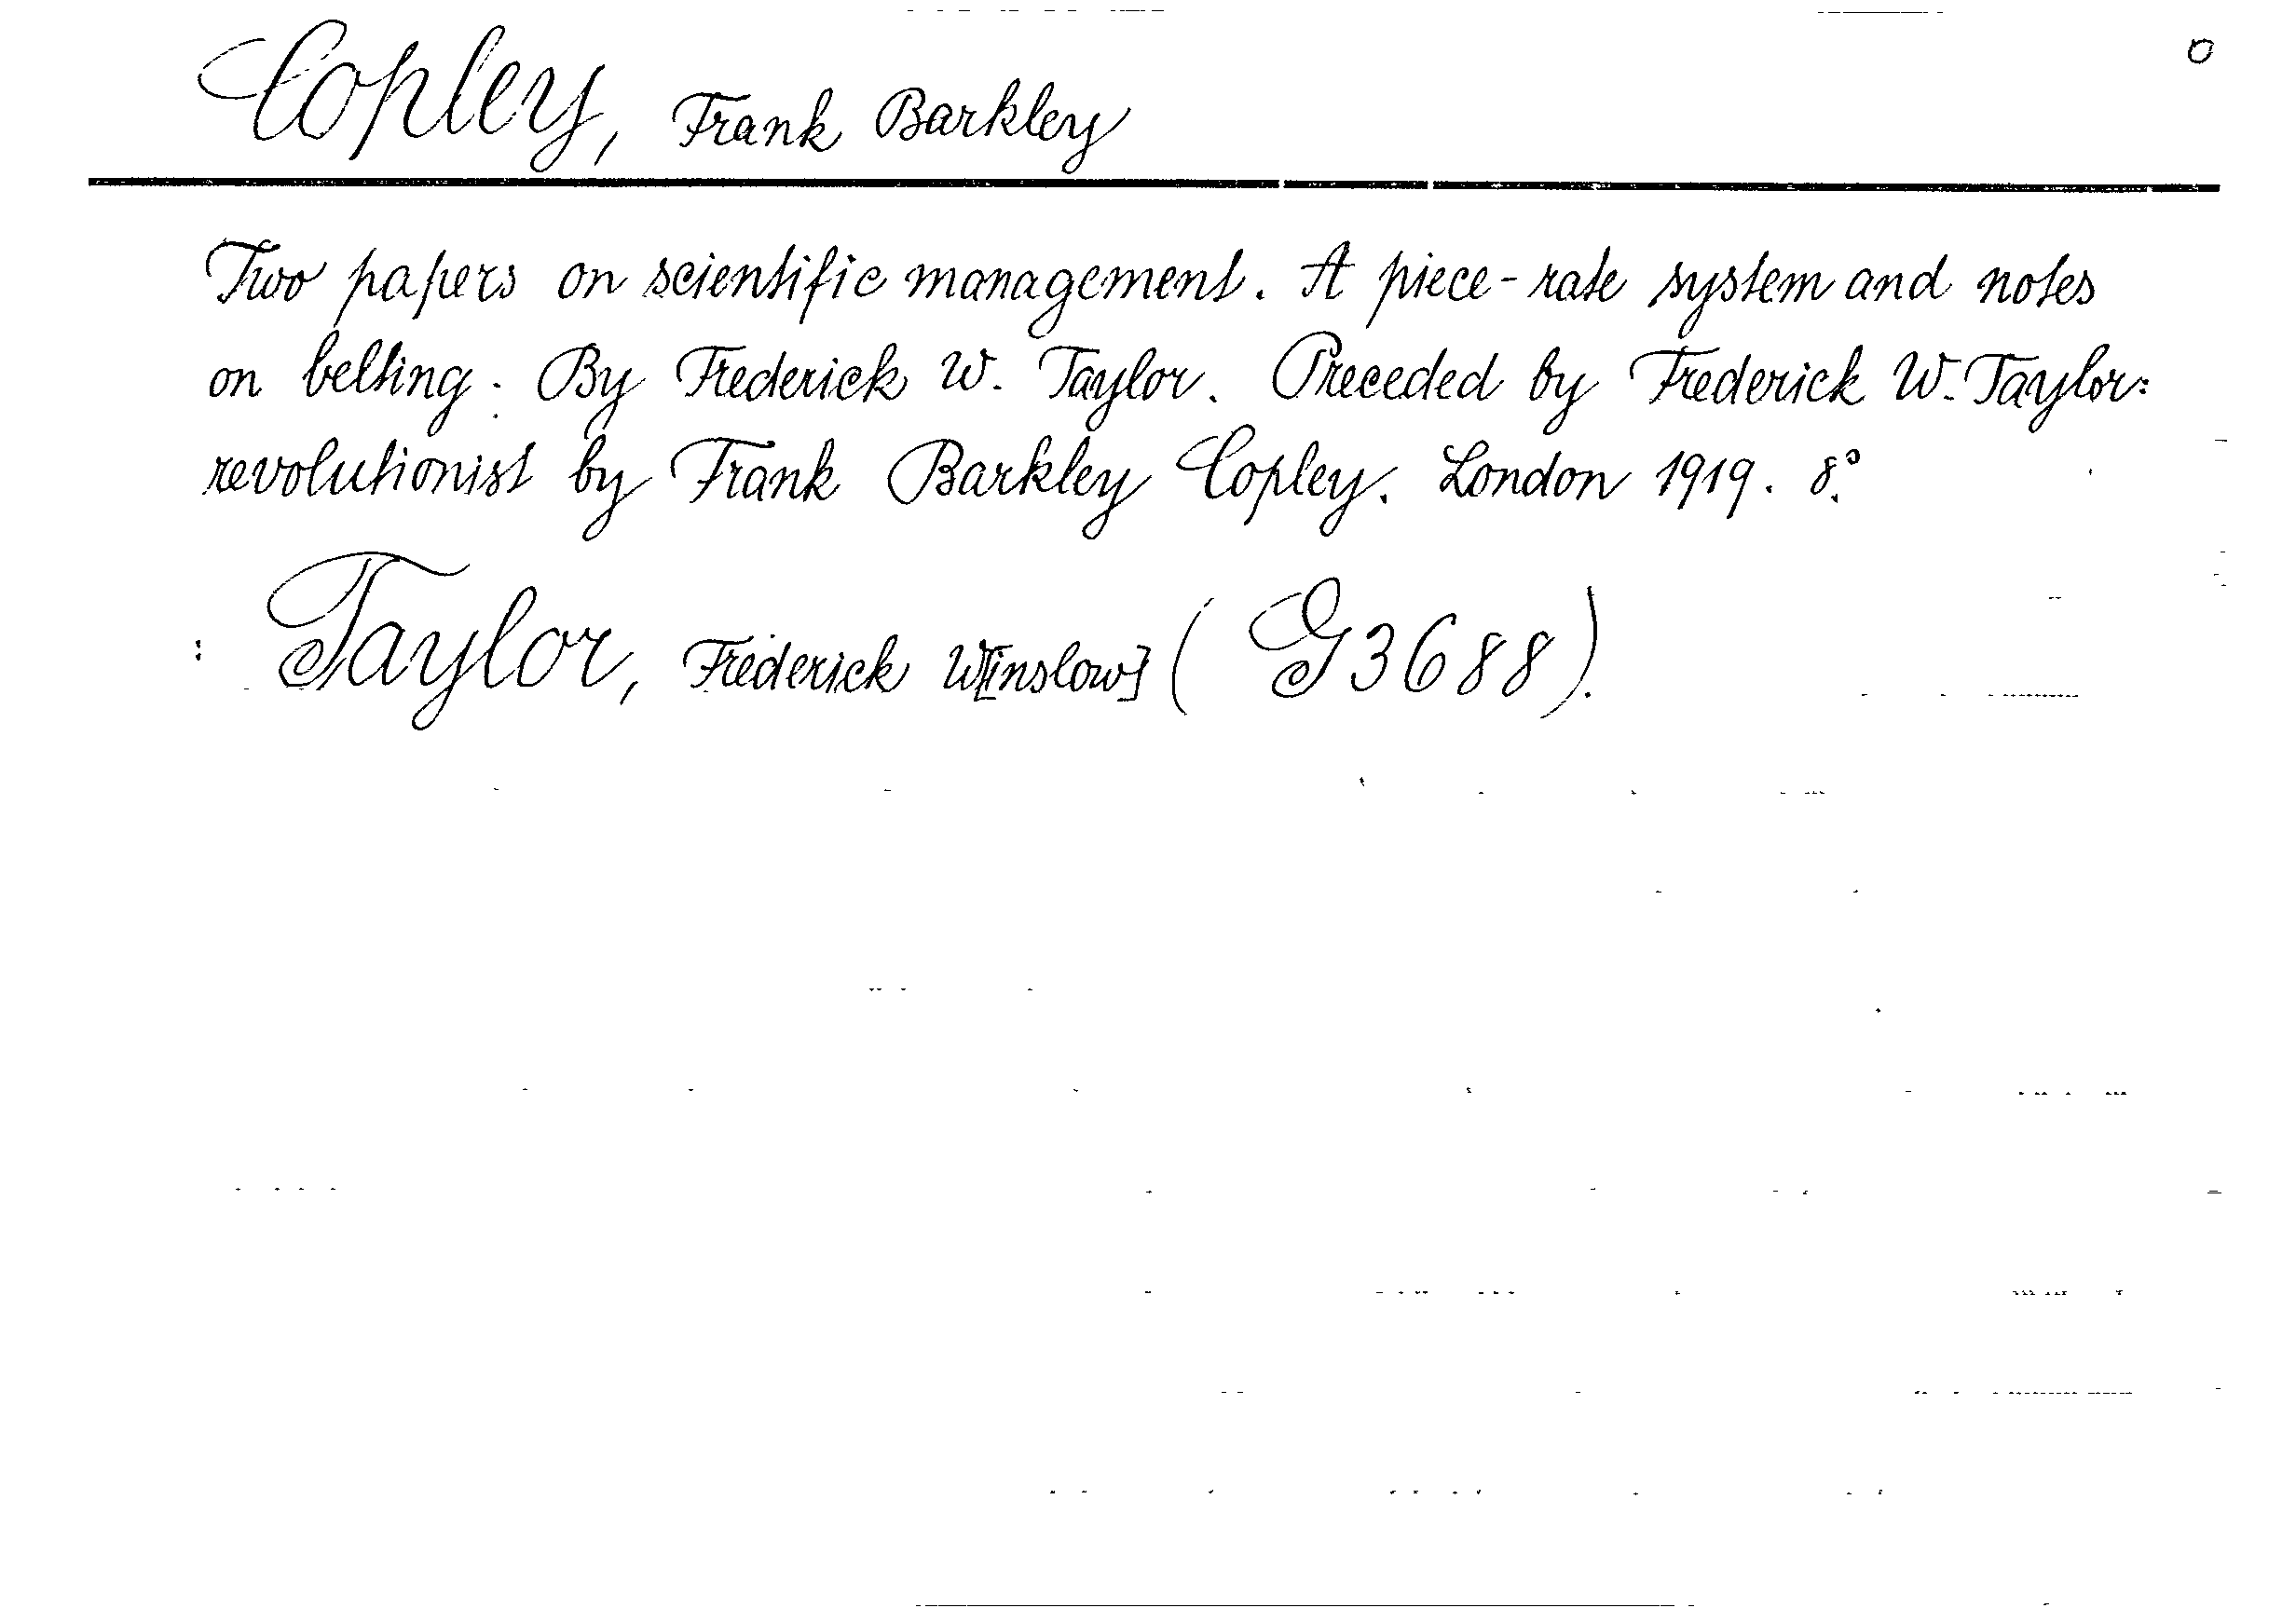 Copley, Frank Barkley
Two papers on scientific management. A piece-rate system and notes
on belting. By Frederick W. Taylor. Preceded by Frederick W. Taylor:
revolutionist by Frank Barkley Copley. London 1919. 8°.
: Taylor, Frederick W[inslow] (G3688).